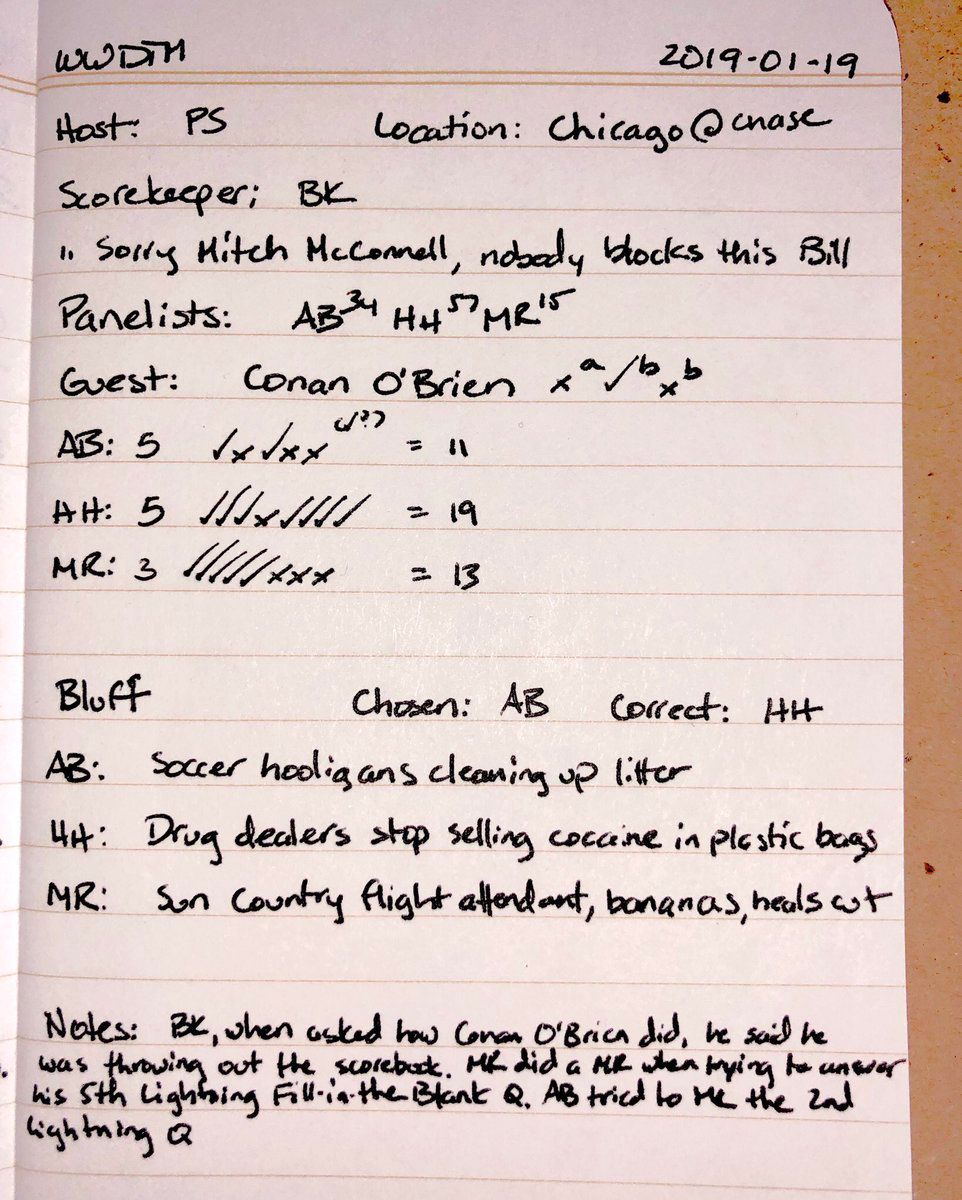 WWDTM 2019-01-19
Host: PS Location: Chicago @ Chase
Scorekeeper: BK
" Sorry Mitch McConnell, nobody blocks this Bill
Panelists: AB³⁴ HH⁵⁷ MR¹⁵
Guest: Conan O'Brien xᵃ ✓ᵇ xᵇ
AB: 5 ✓x✓xx = 11
HH: 5 ✓✓✓x✓✓✓✓ = 19
MR: 3 ✓✓✓✓✓xxx = 13
Bluff Chosen: AB Correct: HH
AB: Soccer hooligans cleaning up litter
HH: Drug dealers stop selling cocaine in plastic bags
MR: Sun Country flight attendant, bananas, heals cut
Notes: BK, when asked how Conan O'Brien did, he said he
was throwing out the scorebook. MR did a MR when trying to answer
his 5th Lightning Fill-in-the-Blank Q. AB tried to the 2nd
lightning Q